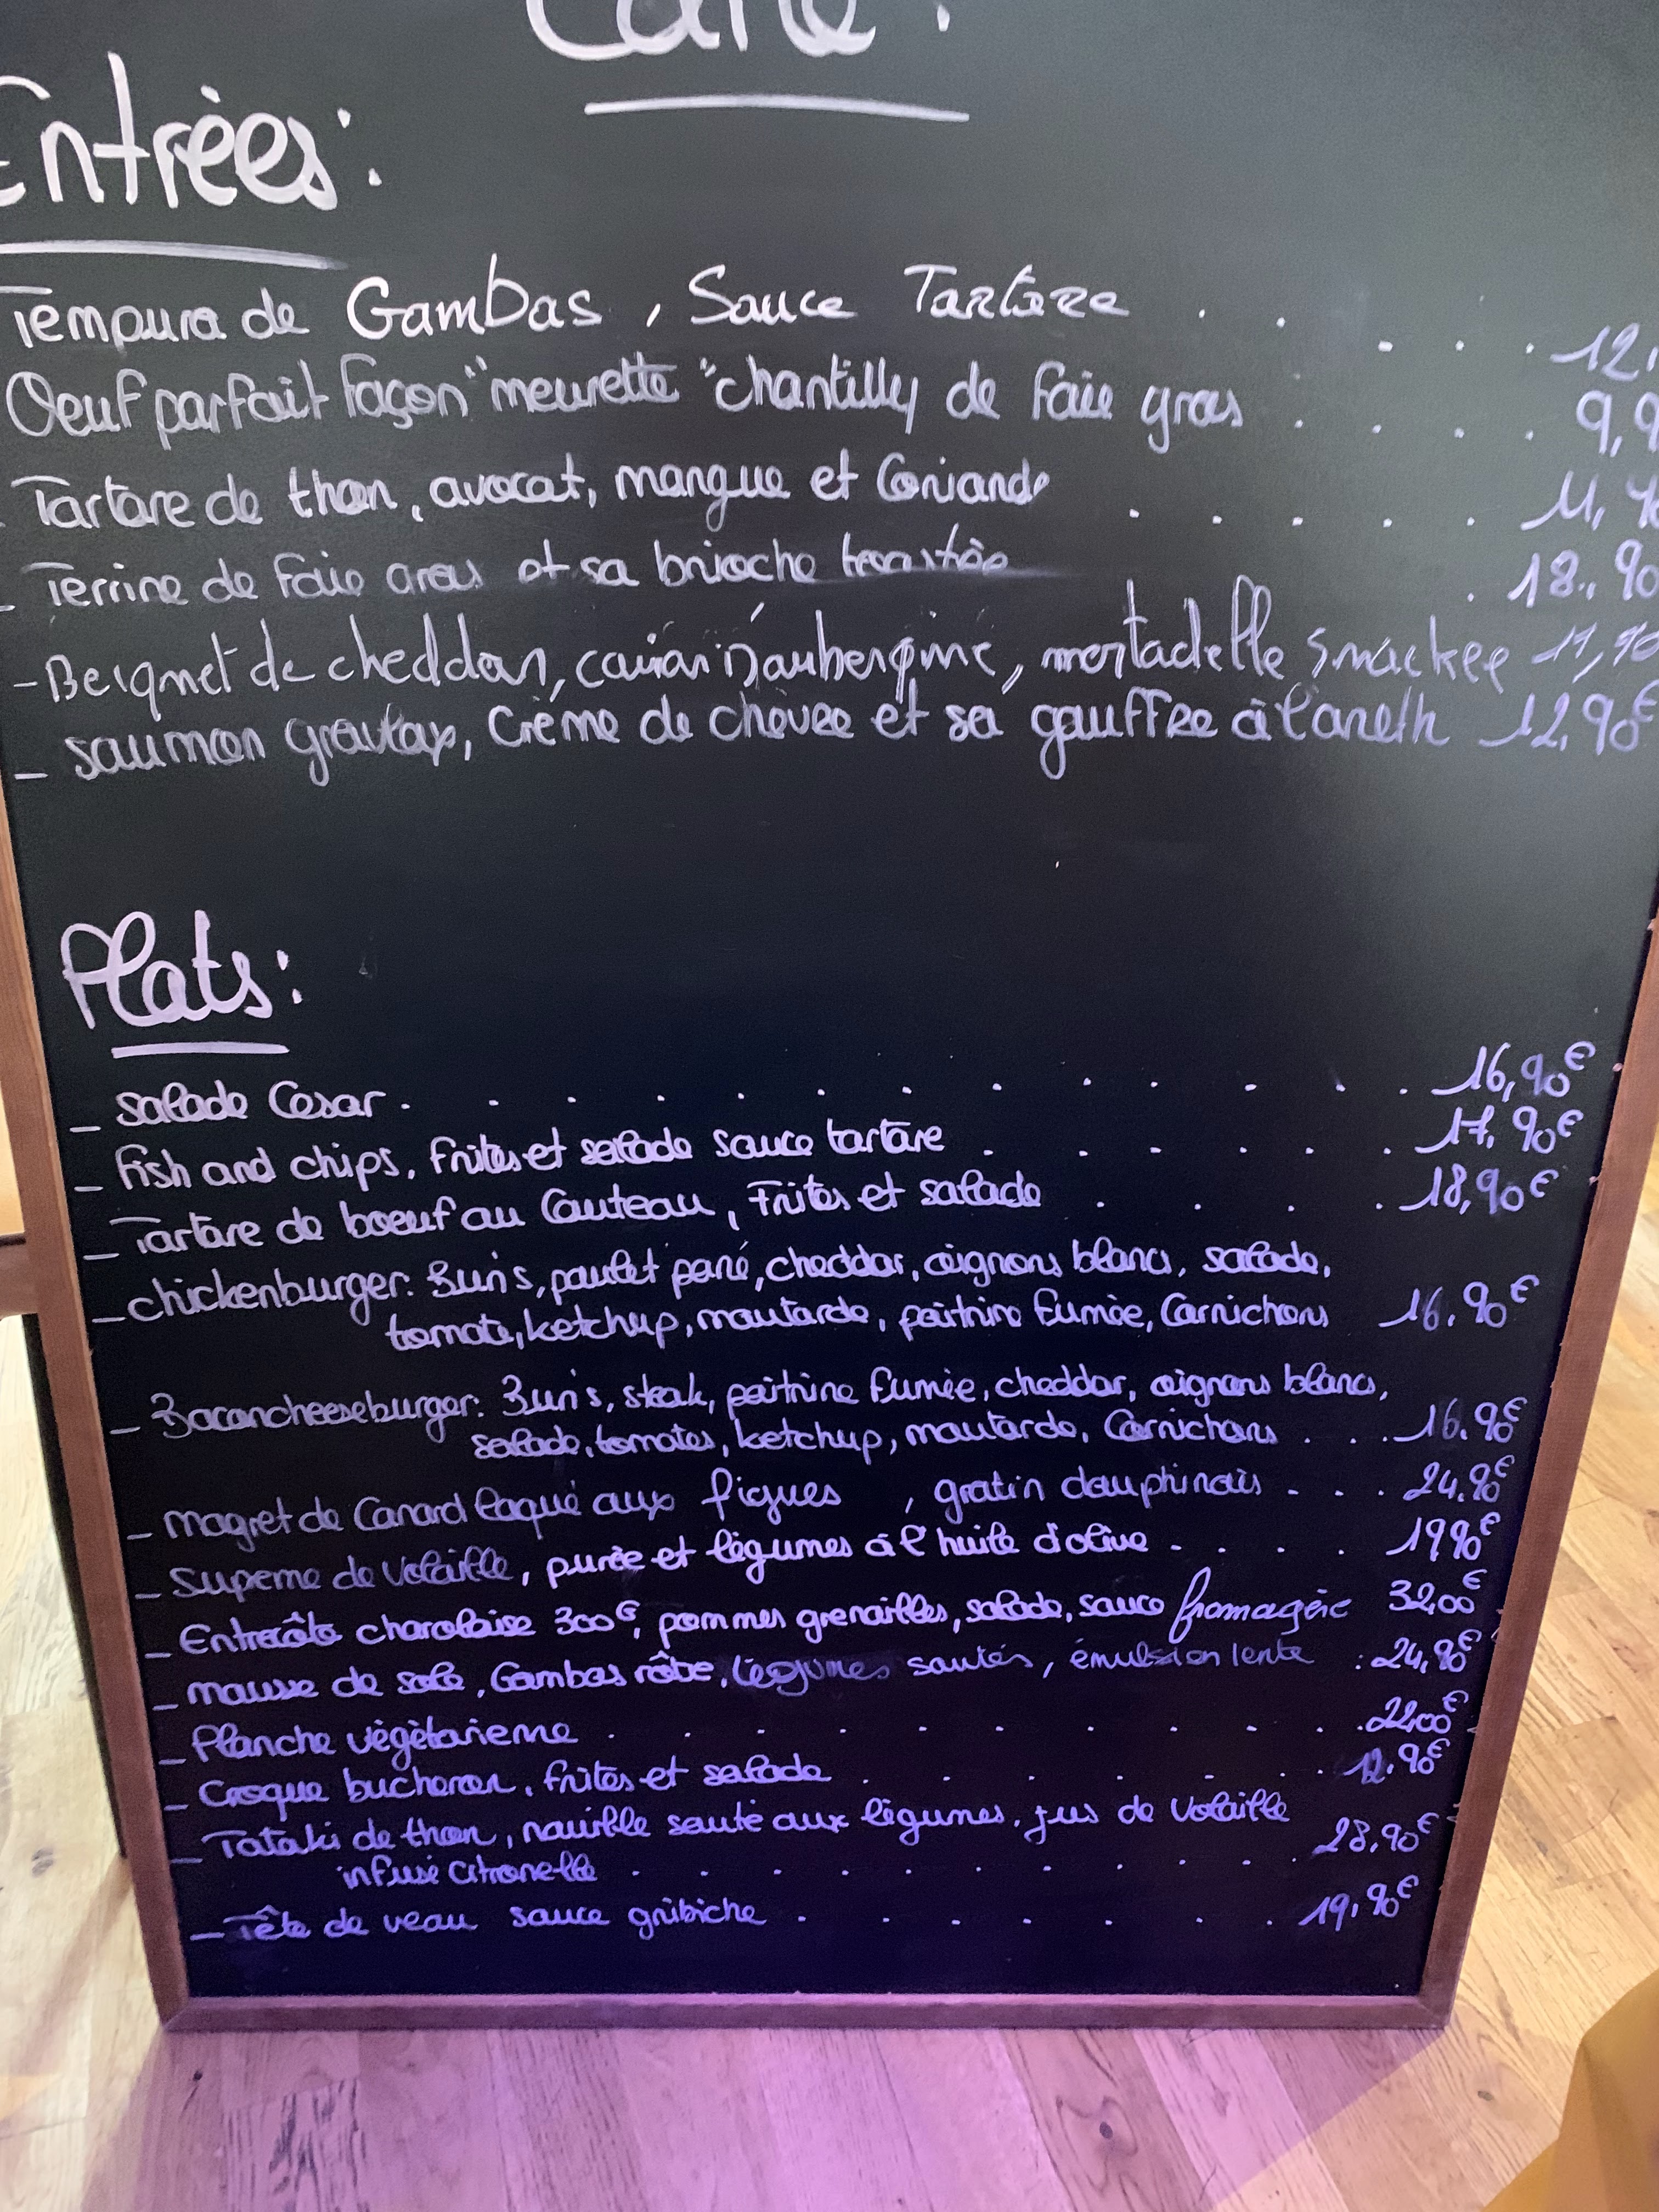 Carte :
Entrées :
Tempura de Gambas, Sauce Tartare . . . . . . 12,
Oeuf parfait façon "meurette" chantilly de foie gras . . . . . 9,9
Tartare de thon, avocat, mangue et Coriandre . . . . . 11,90
_ Terrine de foie gras et sa brioche toastée . 18,90
- Beignet de cheddar, caviar D'aubergine, mortadelle smackée 11,90
_ saumon gravlax, Crème de chèvre et sa gauffre à l'aneth 12,90€
Plats :
_ salade César . . . . . . . . . . . . 16,90€
_ fish and chips, frites et salade sauce tartare . . . . . . 17,90€
_ Tartare de boeuf au Couteau, Frites et salade . . . . 18,90€
_ chickenburger : Bun's, poulet pané, cheddar, oignons blancs, salade,
tomate, ketchup, moutarde, poitrine fumée, Cornichons 16,90€
_ Baconcheeseburger : Bun's, steak, poitrine fumée, cheddar, oignons blancs,
salade, tomates, ketchup, moutarde, Cornichons . . . 16,90€
_ magret de Canard laqué aux figues , gratin dauphinois . . . 24,90€
_ Supeme de Volaille, purée et légumes à l'huile d'olive . . . . 19,90€
_ Entrecôte charolaise 300G, pommes grenailles, salade, sauce fromagère 32,00€
_ mousse de sole, Gambas rôtie, légumes sautés, émulsion : 24,90€
_ Planche végétarienne . . . . . . . . . . 22,00€
_ Croque bucheron, frites et salade . . . . . . . ,90€
_ Tataki de thon, nouille sauté aux légumes, jus de Volaille
infusé citronelle . . . . . . . . . . 28,90€
_ Tête de veau sauce gribiche . . . . . . 19,90€